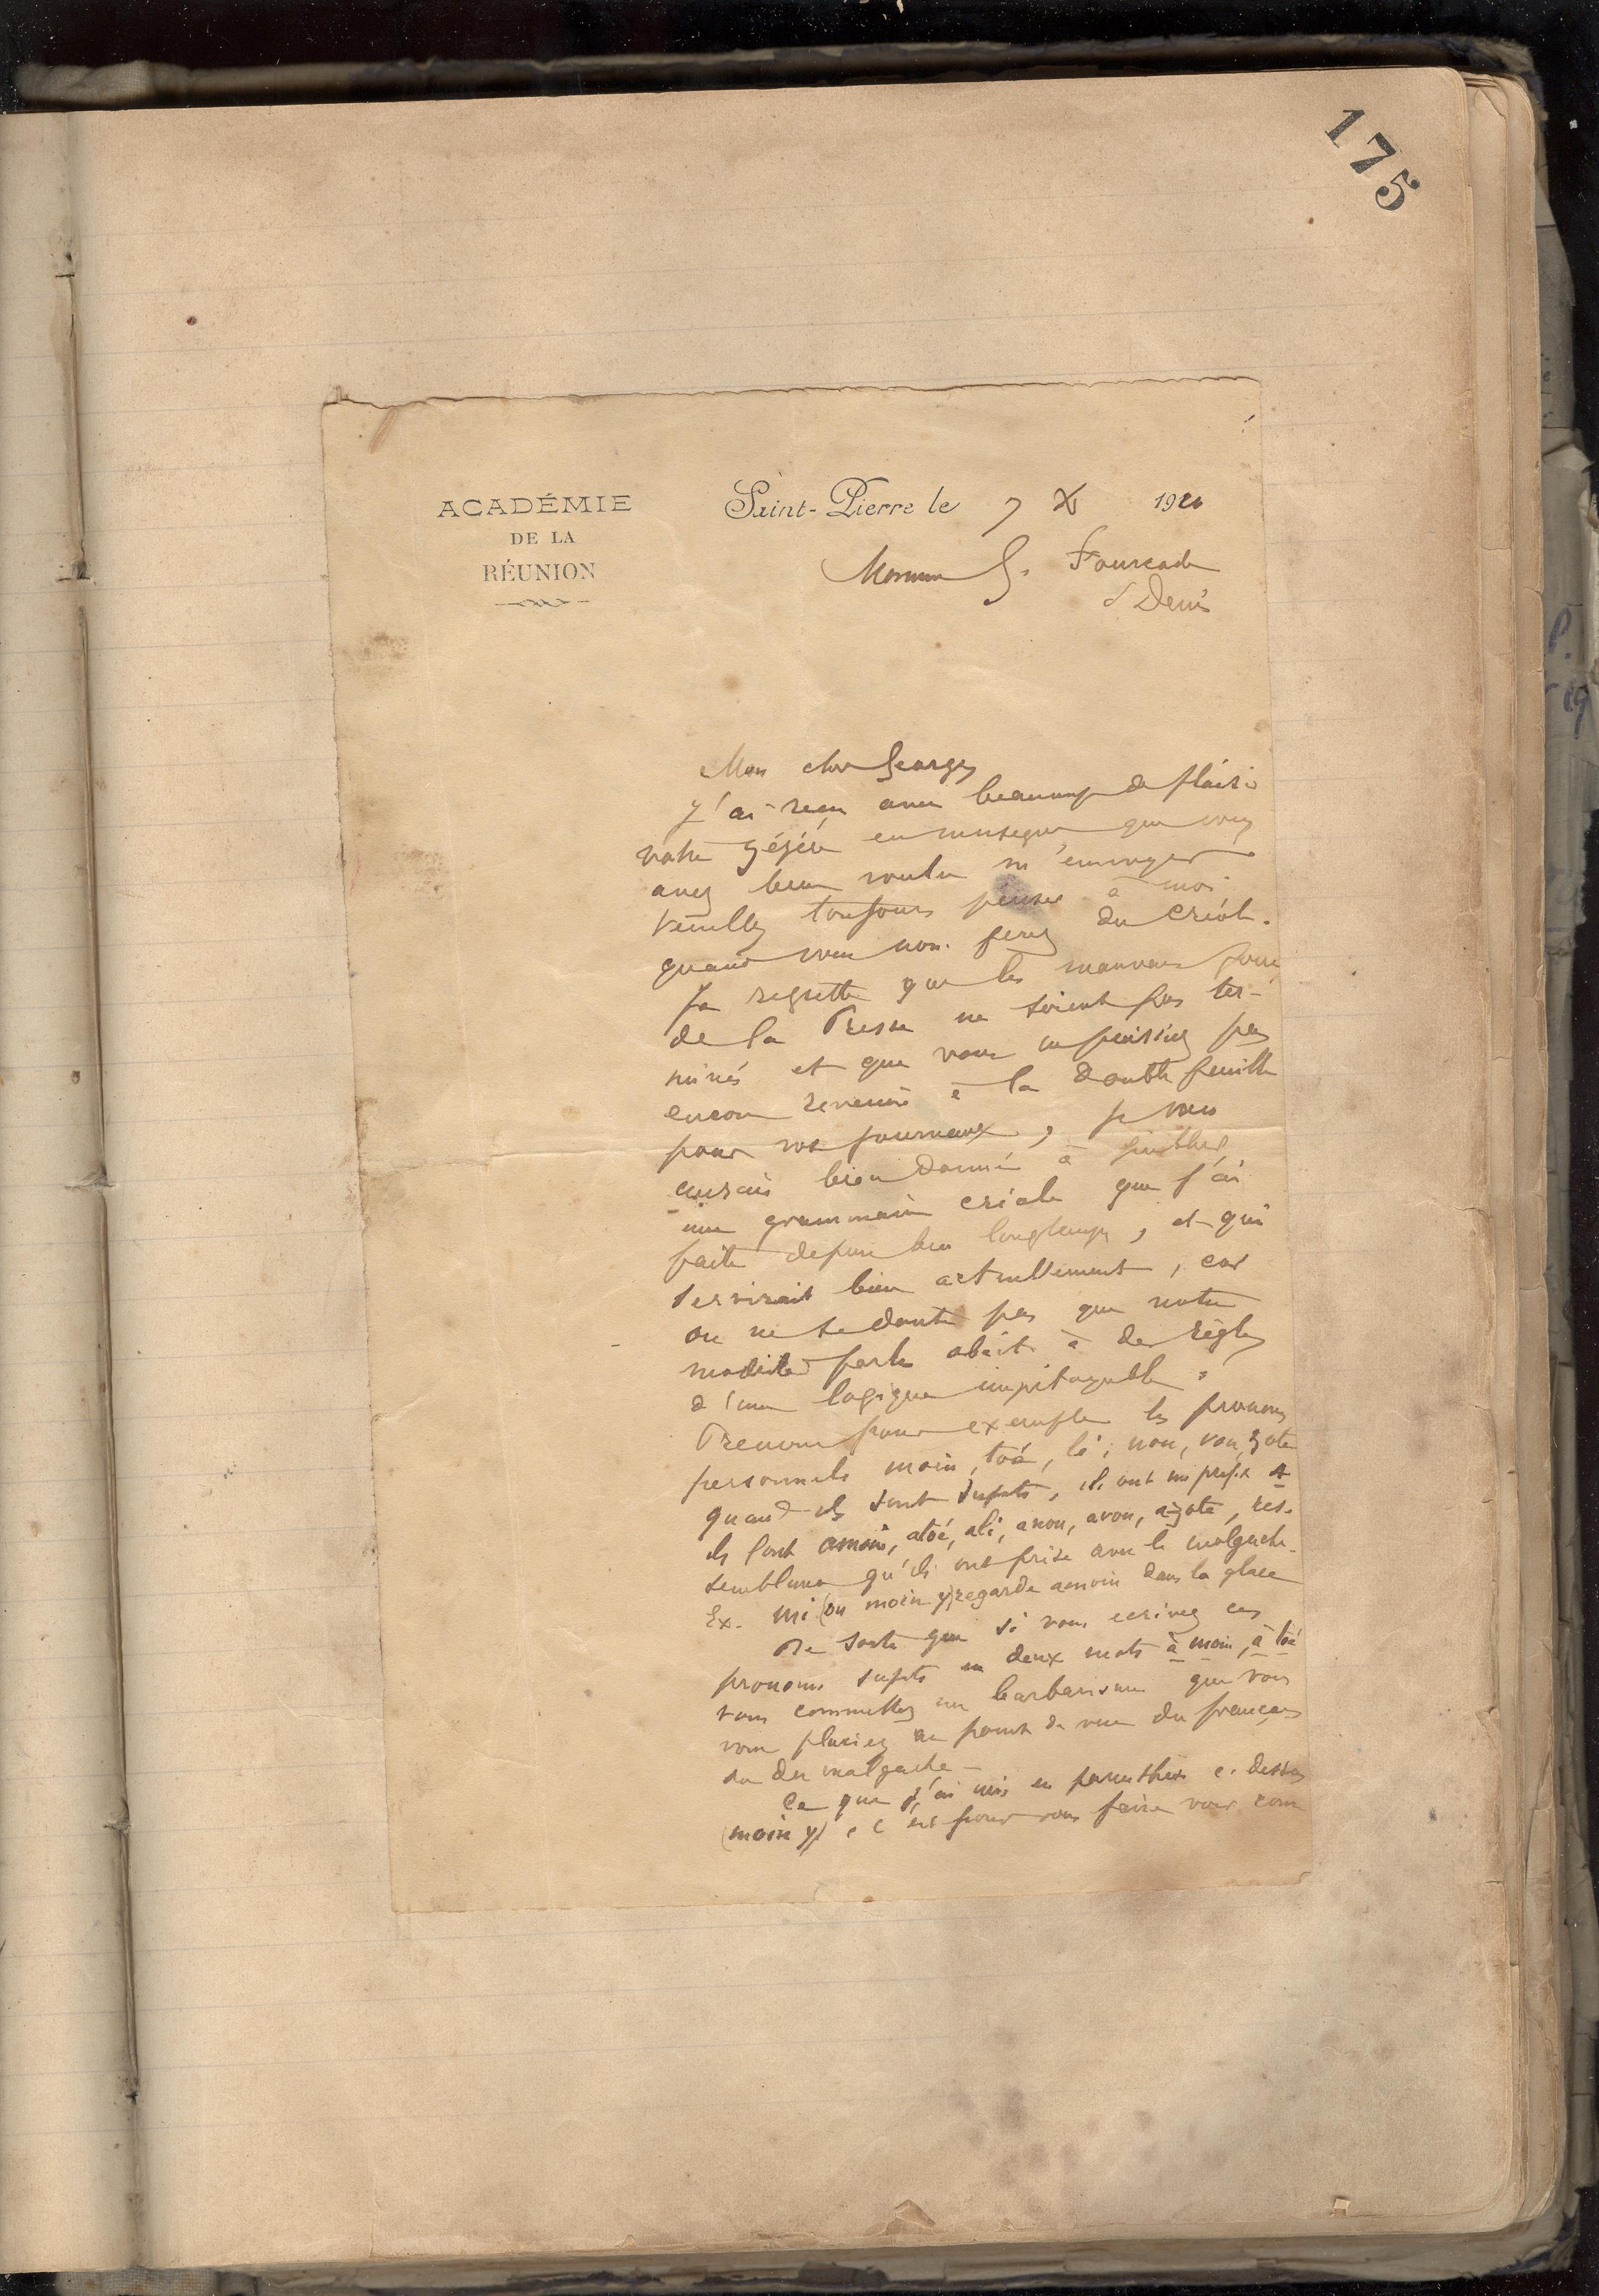 175
ACADÉMIE
DE LA
RÉUNION
Saint-Pierre le 7 X 1920
Monsieur G. Fourcade
St Denis
Mon cher Georges
J'ai reçu avec beaucoup de plaisir
votre Zézère en musique que vous
avez bien voulu m'envoyer
Veuillez toujours penser à moi
quand vous nous ferez du créole.
Je regrette que les mauvais jours
de la Presse ne soient pas ter-
minés et que vous ne puissiez pas
encore revenir à la double feuille
pour vos journaux, je vous
aurais bien donné à publier
une grammaire créole que j'ai
faite depuis bien longtemps, et qui
servirait bien actuellement, car
on ne se doute pas que notre
parler obéit à des règles
d'une logique impitoyable.
Prenons pour exemple les pronoms
personnels moin, toé, li, nou, vou, zote
quand ils sont sujets, ils ont un prefix a
ils font amoin, atoé, ali, anou, avou, azote, res-
semblance qu'ils ont prise avec le malgache.
Ex. Mi (ou moin y) regarde amoin dans la glace
De sorte que si vous écrivez ces
pronoms sujets en deux mots à moin, à toé
vous commettez un barbarisme que vous
vous placiez au point de vue du français
ou du malgache -
Ce que j'ai mis en parenthèse ci-dessus
(moin y), c'est pour vous faire voir com